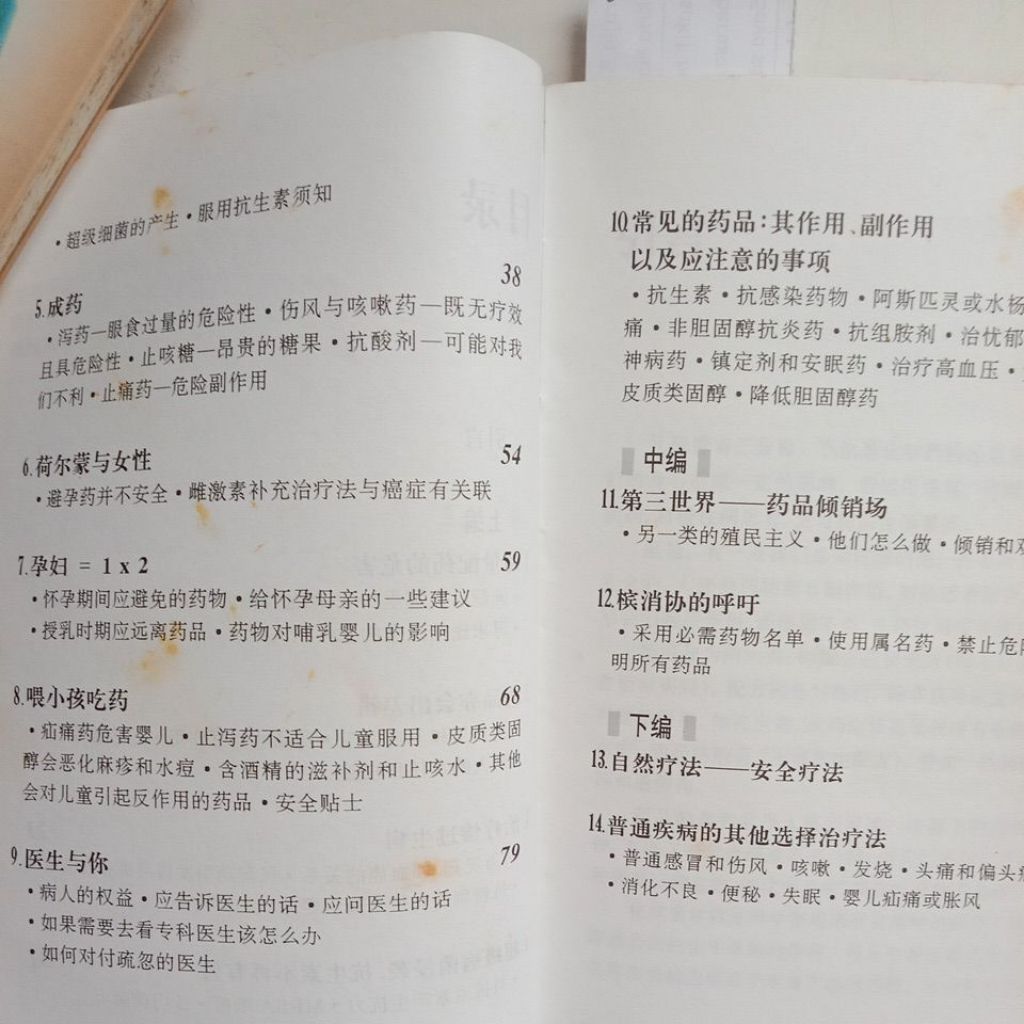 ·超级细菌的产生·服用抗生素须知
5.成药 38
·泻药—服食过量的危险性·伤风与咳嗽药—既无疗效
且具危险性·止咳糖—昂贵的糖果·抗酸剂—可能对我
们不利·止痛药—危险副作用
6.荷尔蒙与女性 54
·避孕药并不安全·雌激素补充治疗法与癌症有关联
7.孕妇 = 1 x 2 59
·怀孕期间应避免的药物·给怀孕母亲的一些建议
·授乳时期应远离药品·药物对哺乳婴儿的影响
8.喂小孩吃药 68
·疝痛药危害婴儿·止泻药不适合儿童服用·皮质类固
醇会恶化麻疹和水痘·含酒精的滋补剂和止咳水·其他
会对儿童引起反作用的药品·安全贴士
9.医生与你 79
·病人的权益·应告诉医生的话·应问医生的话
·如果需要去看专科医生该怎么办
·如何对付疏忽的医生
10.常见的药品：其作用、副作用
以及应注意的事项
·抗生素·抗感染药物·阿斯匹灵或水杨
痛·非胆固醇抗炎药·抗组胺剂·治忧郁
神病药·镇定剂和安眠药·治疗高血压·
皮质类固醇·降低胆固醇药
中编
11.第三世界——药品倾销场
·另一类的殖民主义·他们怎么做·倾销和
12.槟消协的呼吁
·采用必需药物名单·使用属名药·禁止危
明所有药品
下编
13.自然疗法——安全疗法
14.普通疾病的其他选择治疗法
·普通感冒和伤风·咳嗽·发烧·头痛和偏头
·消化不良·便秘·失眠·婴儿疝痛或胀风